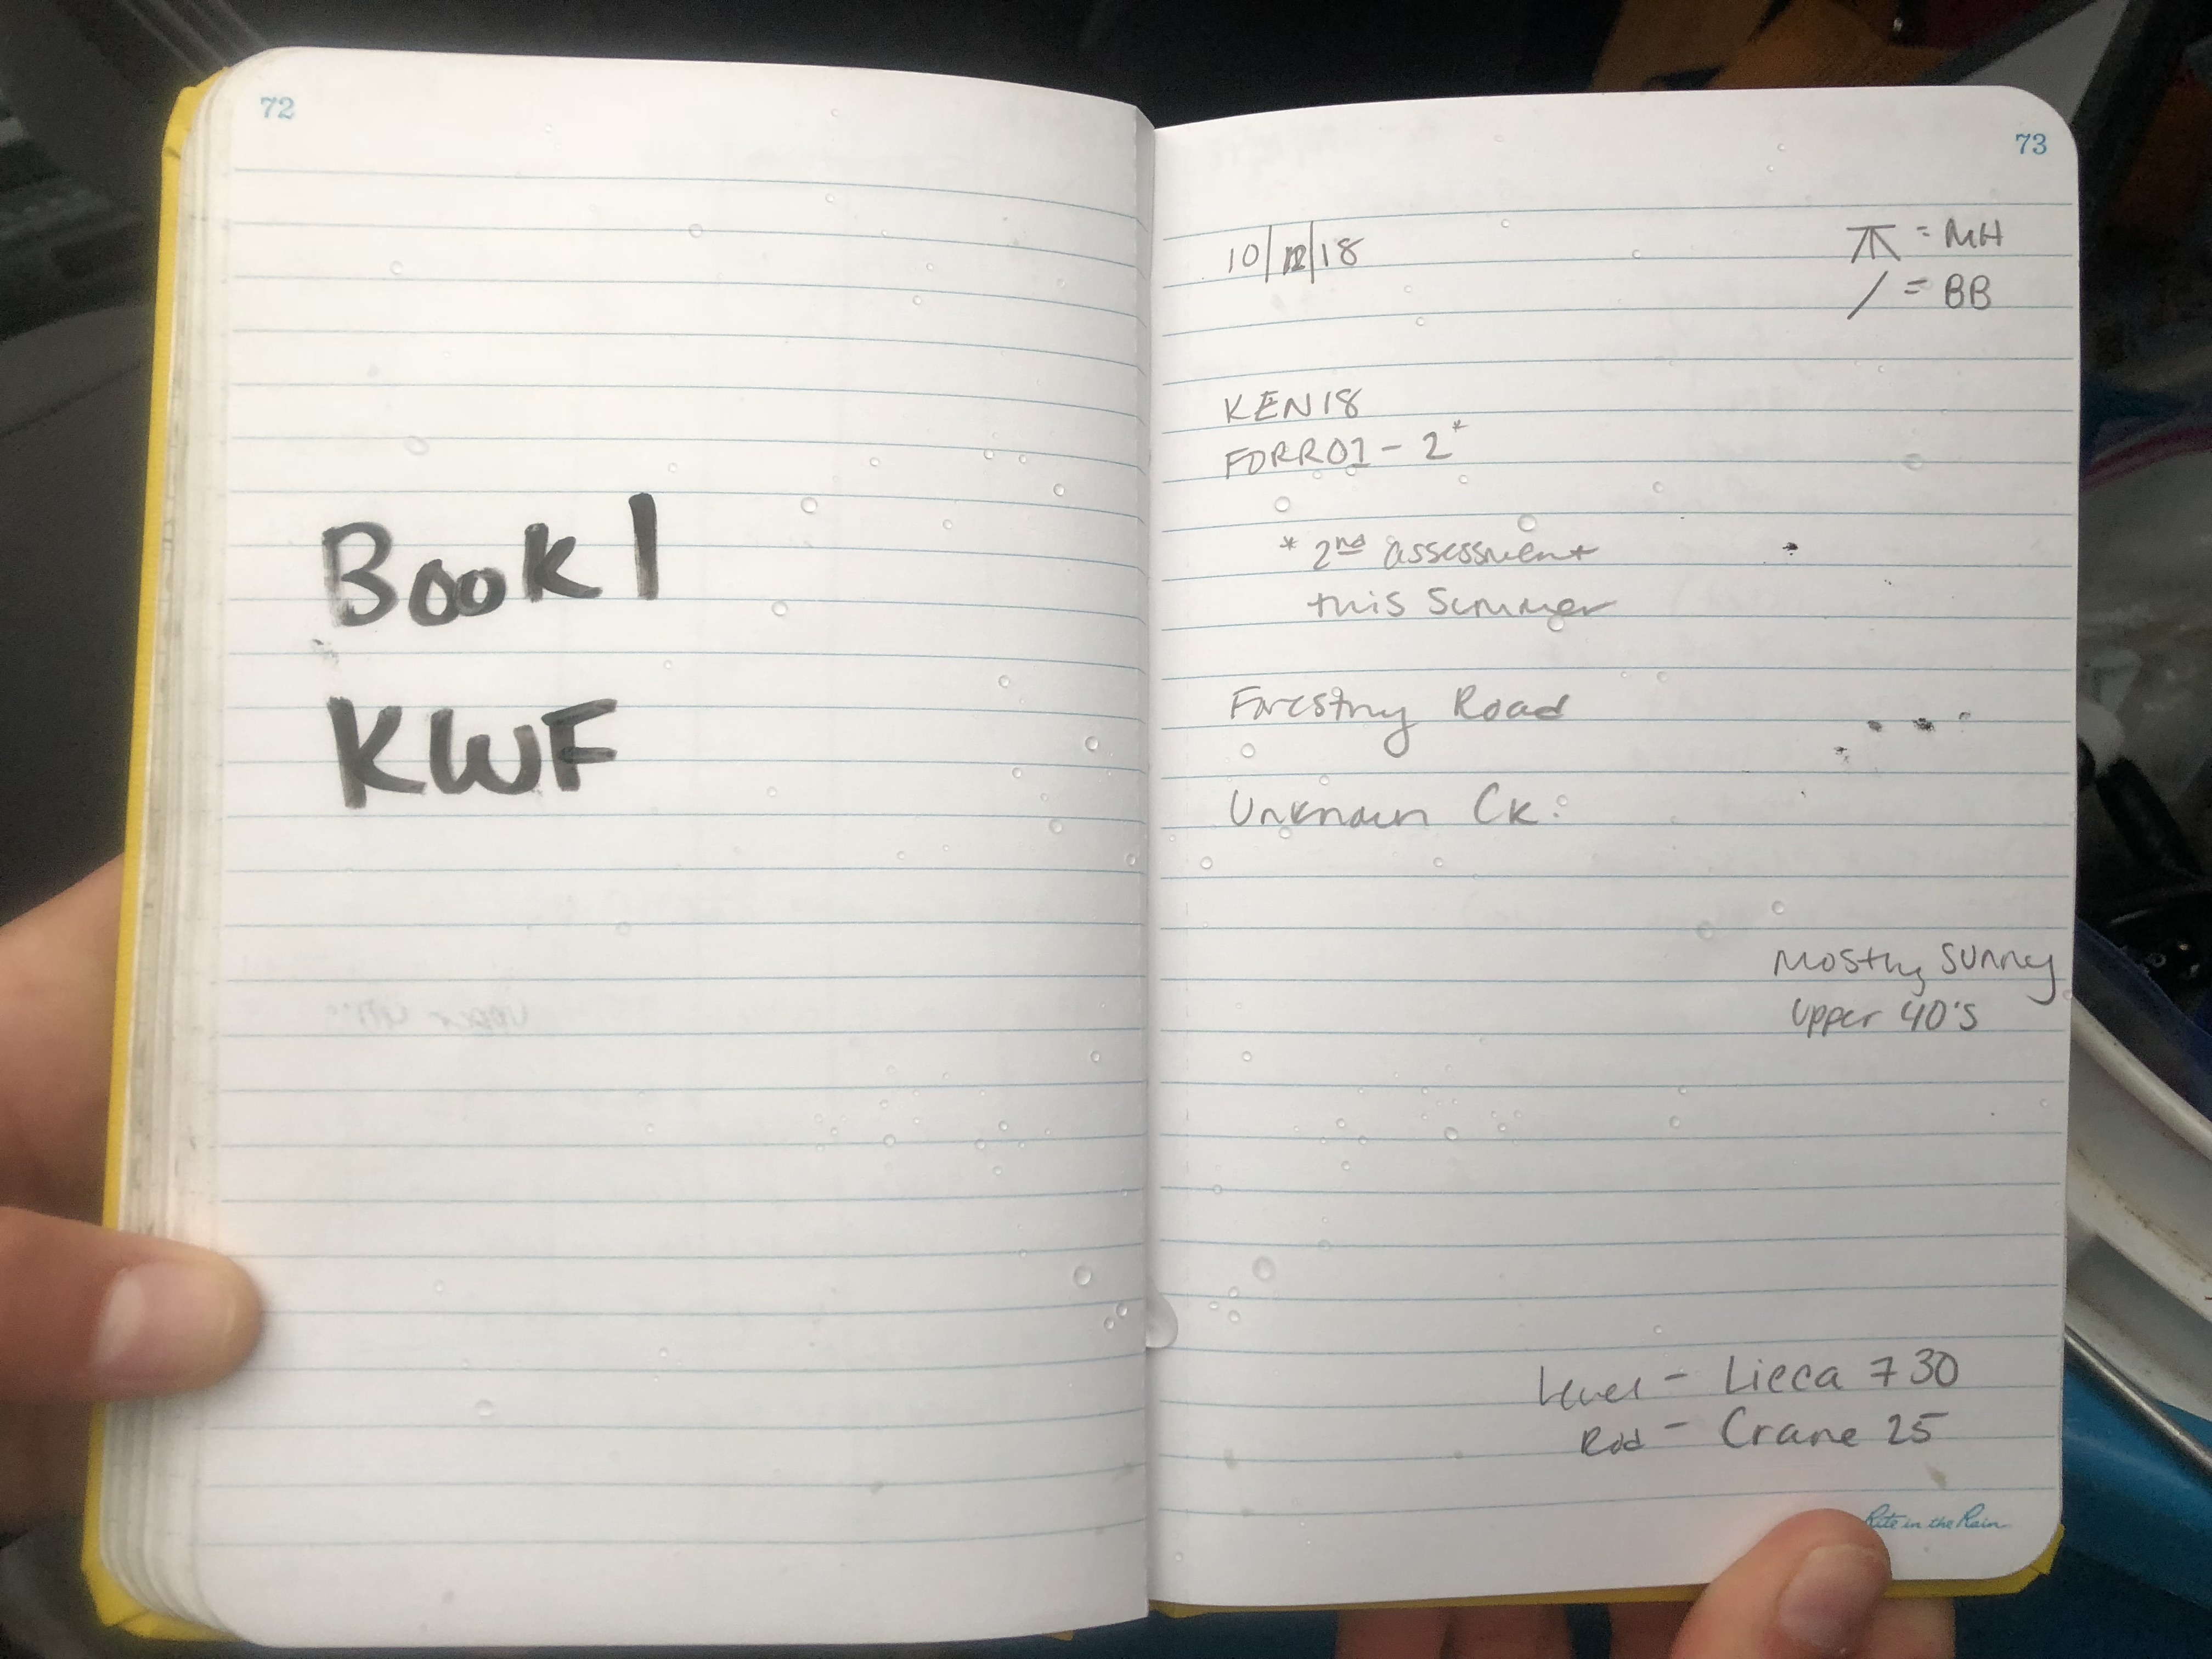 72
Book 1
KWF
73
10/12/18
= MH
/ = BB
KEN18
FORR01-2*
* 2nd assessment
this Summer
Forestry Road
Unknown Ck:
Mostly Sunny
upper 40's
Level - Lieca 730
Rod - Crane 25
Rite in the Rain